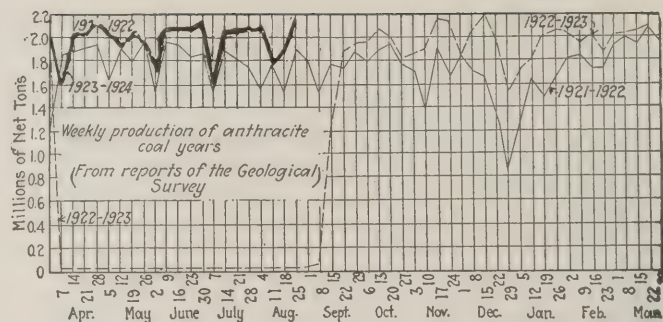 Millions of Net Tons
2.2
2.0
1.8
1.6
1.4
1.2
1.0
0.8
0.6
0.4
0.2
0
1921-1922
1923-1924
1922-1923
1921-1922
Weekly production of anthracite
coal years
(From reports of the Geological)
Survey
1922-1923
7 14 21 28 5 12 19 26 2 9 16 23 30 7 14 21 28 4 11 18 25 1 8 15 22 29 6 13 20 27 3 10 17 24 1 8 15 22 29 5 12 19 26 2 9 16 23 1 8 15 22
Apr. May June July Aug. Sept. Oct. Nov. Dec. Jan. Feb. Mar.